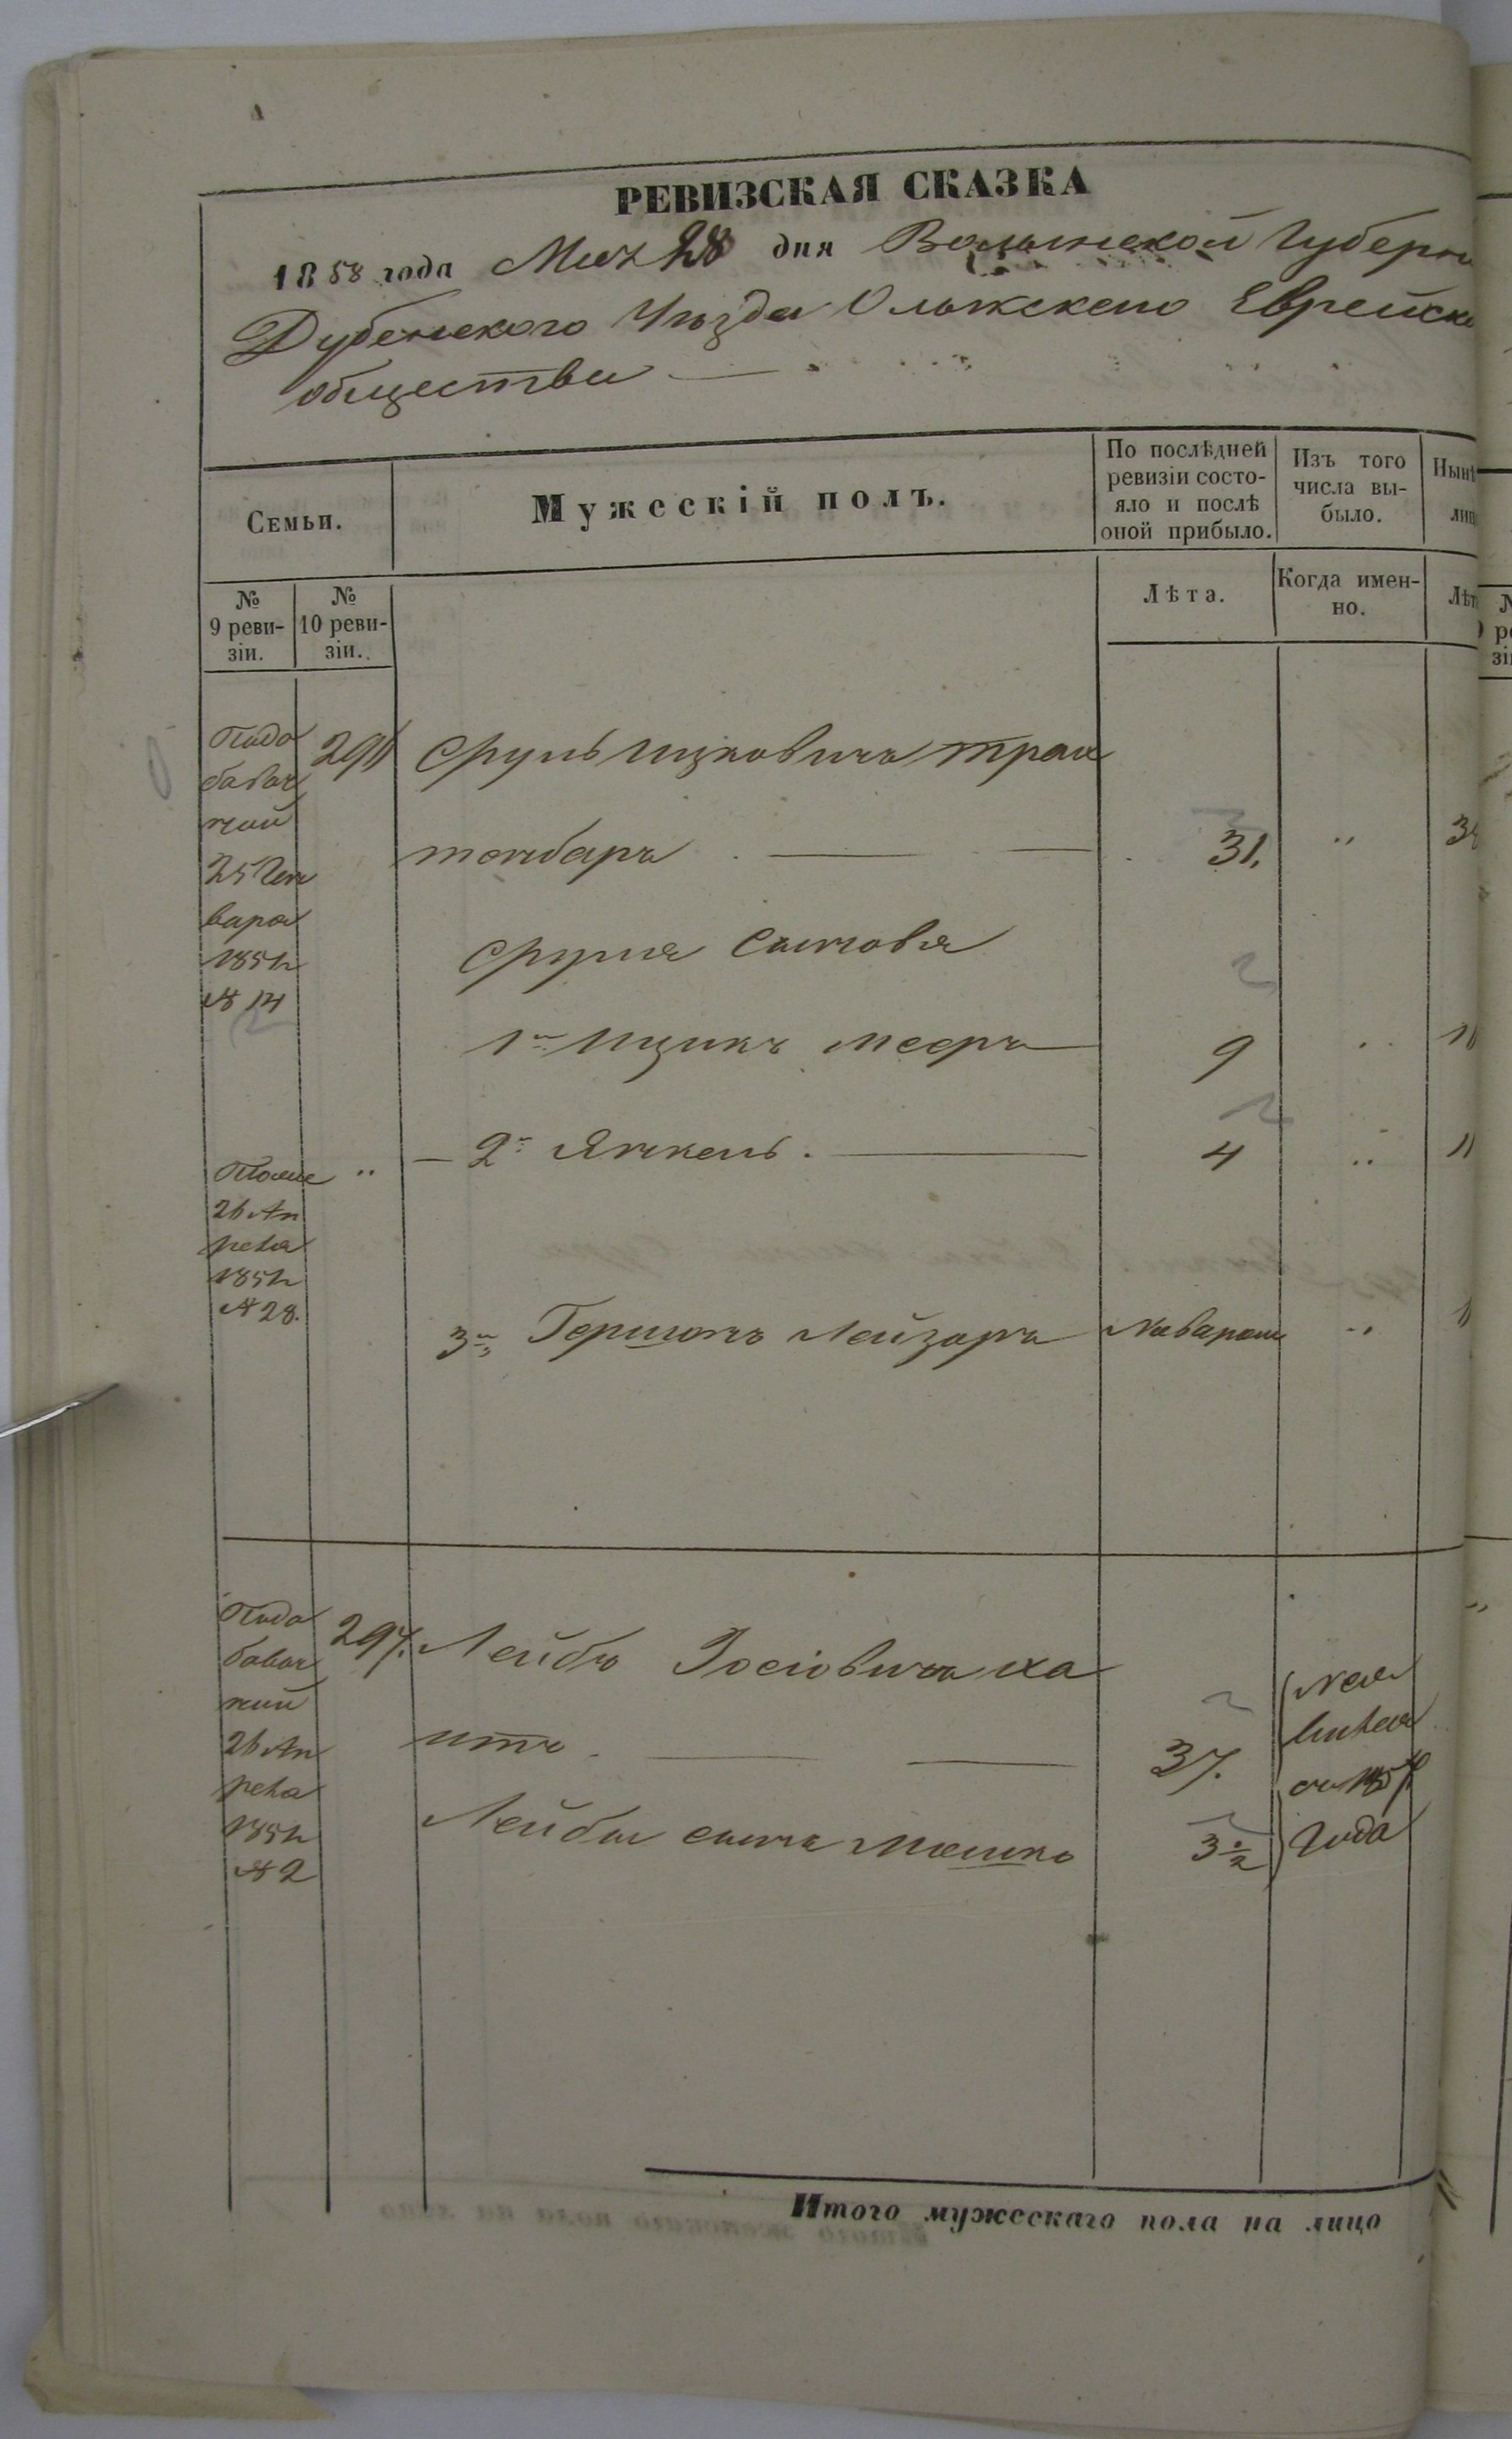 РЕВИЗСКАЯ СКАЗКА
1858 года Мая 28 дня Волынской Губерн
Дубенского Уѣзда Олыкскаго Еврейска
общества
Семьи.
Мужескій полъ.
По послѣдней
ревизіи состо-
яло и послѣ
оной прибыло.
Изъ того
числа вы-
было.
Нынѣ
лиц
№
9 реви-
зіи.
№
10 реви-
зіи.
Лѣта.
Когда имен-
но.
Лѣт
По до
бавоч
ной
25 Ген
варя
1851
№ 14
Сруль Ицковичъ
31.
Сруля сыновья
1й Ицикъ Меєръ
9
2й Янкель
4
Тоже
26 Ап
реля
1851
№ 28.
3й Гершонъ Лейзоръ
Новорож
По до
бавоч
ной
26 Ап
реля
1851
№ 2
297. Лейба Іосіовичъ Ха
итъ
37.
Лейбы сынъ Мошко
3 ½
года
Итого мужескаго пола на лицо